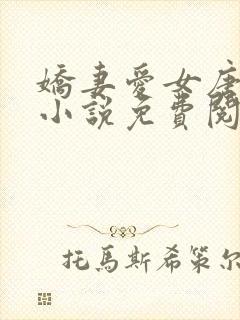 嬌妻愛女唐
小說免費閱
托馬斯希策尔